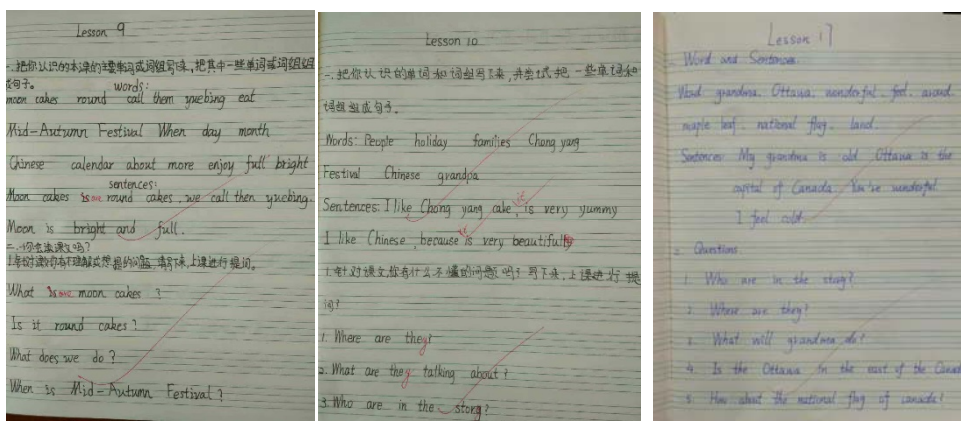 Lesson 9
一.把你认识的本课的主要单词或词组写下来,把其中一些单词或词组组
成句子.
words:
moon cakes round call them yuebing eat
Mid-Autumn Festival When day month
Chinese calendar about more enjoy full bright
sentences:
Moon cakes is are round cakes, we call then yuebing.
Moon is bright and full.
二.你会读课文吗?
What is are moon cakes ?
Is it round cakes?
What does we do ?
When is Mid-Autumn Festival?
Lesson 10
一.把你认识的单词和词组写下来,并尝试把一些单词和
词组组成句子.
Words: People holiday families Chong yang
Festival Chinese grandpa
Sentences: I like Chong yang cake, it is very yummy
I like Chinese, because it is very beautiful
1.针对课文你有什么不懂的问题吗?写下来,上课进行提
问?
1. Where are they?
2. What are they talking about?
3. Who are in the story?
Lesson 17
Word and Sentences.
Word grandma. Ottawa. wonderful. feel. around.
maple leaf. national flag. land.
Sentences: My grandma is old Ottawa is the
capital of Canada. You're wonderful.
I feel cold.
2. Questions.
1. Who are in the story?
2. Where are they?
3. What will grandma do?
4. Is the Ottawa in the east of the Canad
5. How about the national flag of canada?